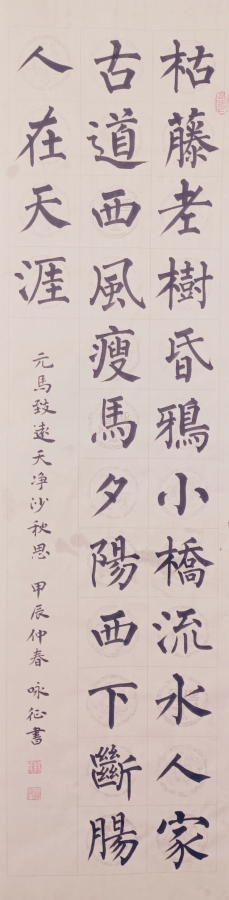 枯藤老樹昏鴉小橋流水人家
古道西風瘦馬夕陽西下斷腸
人在天涯
元馬致遠天净沙秋思 甲辰仲春 咏征書